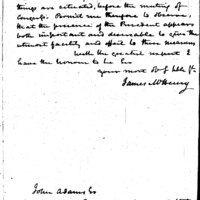 things are situated, before the meeting of
Congress. Permit me therefore to observe,
that the presence of the President appears
both important and desireable to give the
utmost facility and effect to these measures
with the greatest respect I
have the honour to be Sir
your most
James McHenry
John Adams